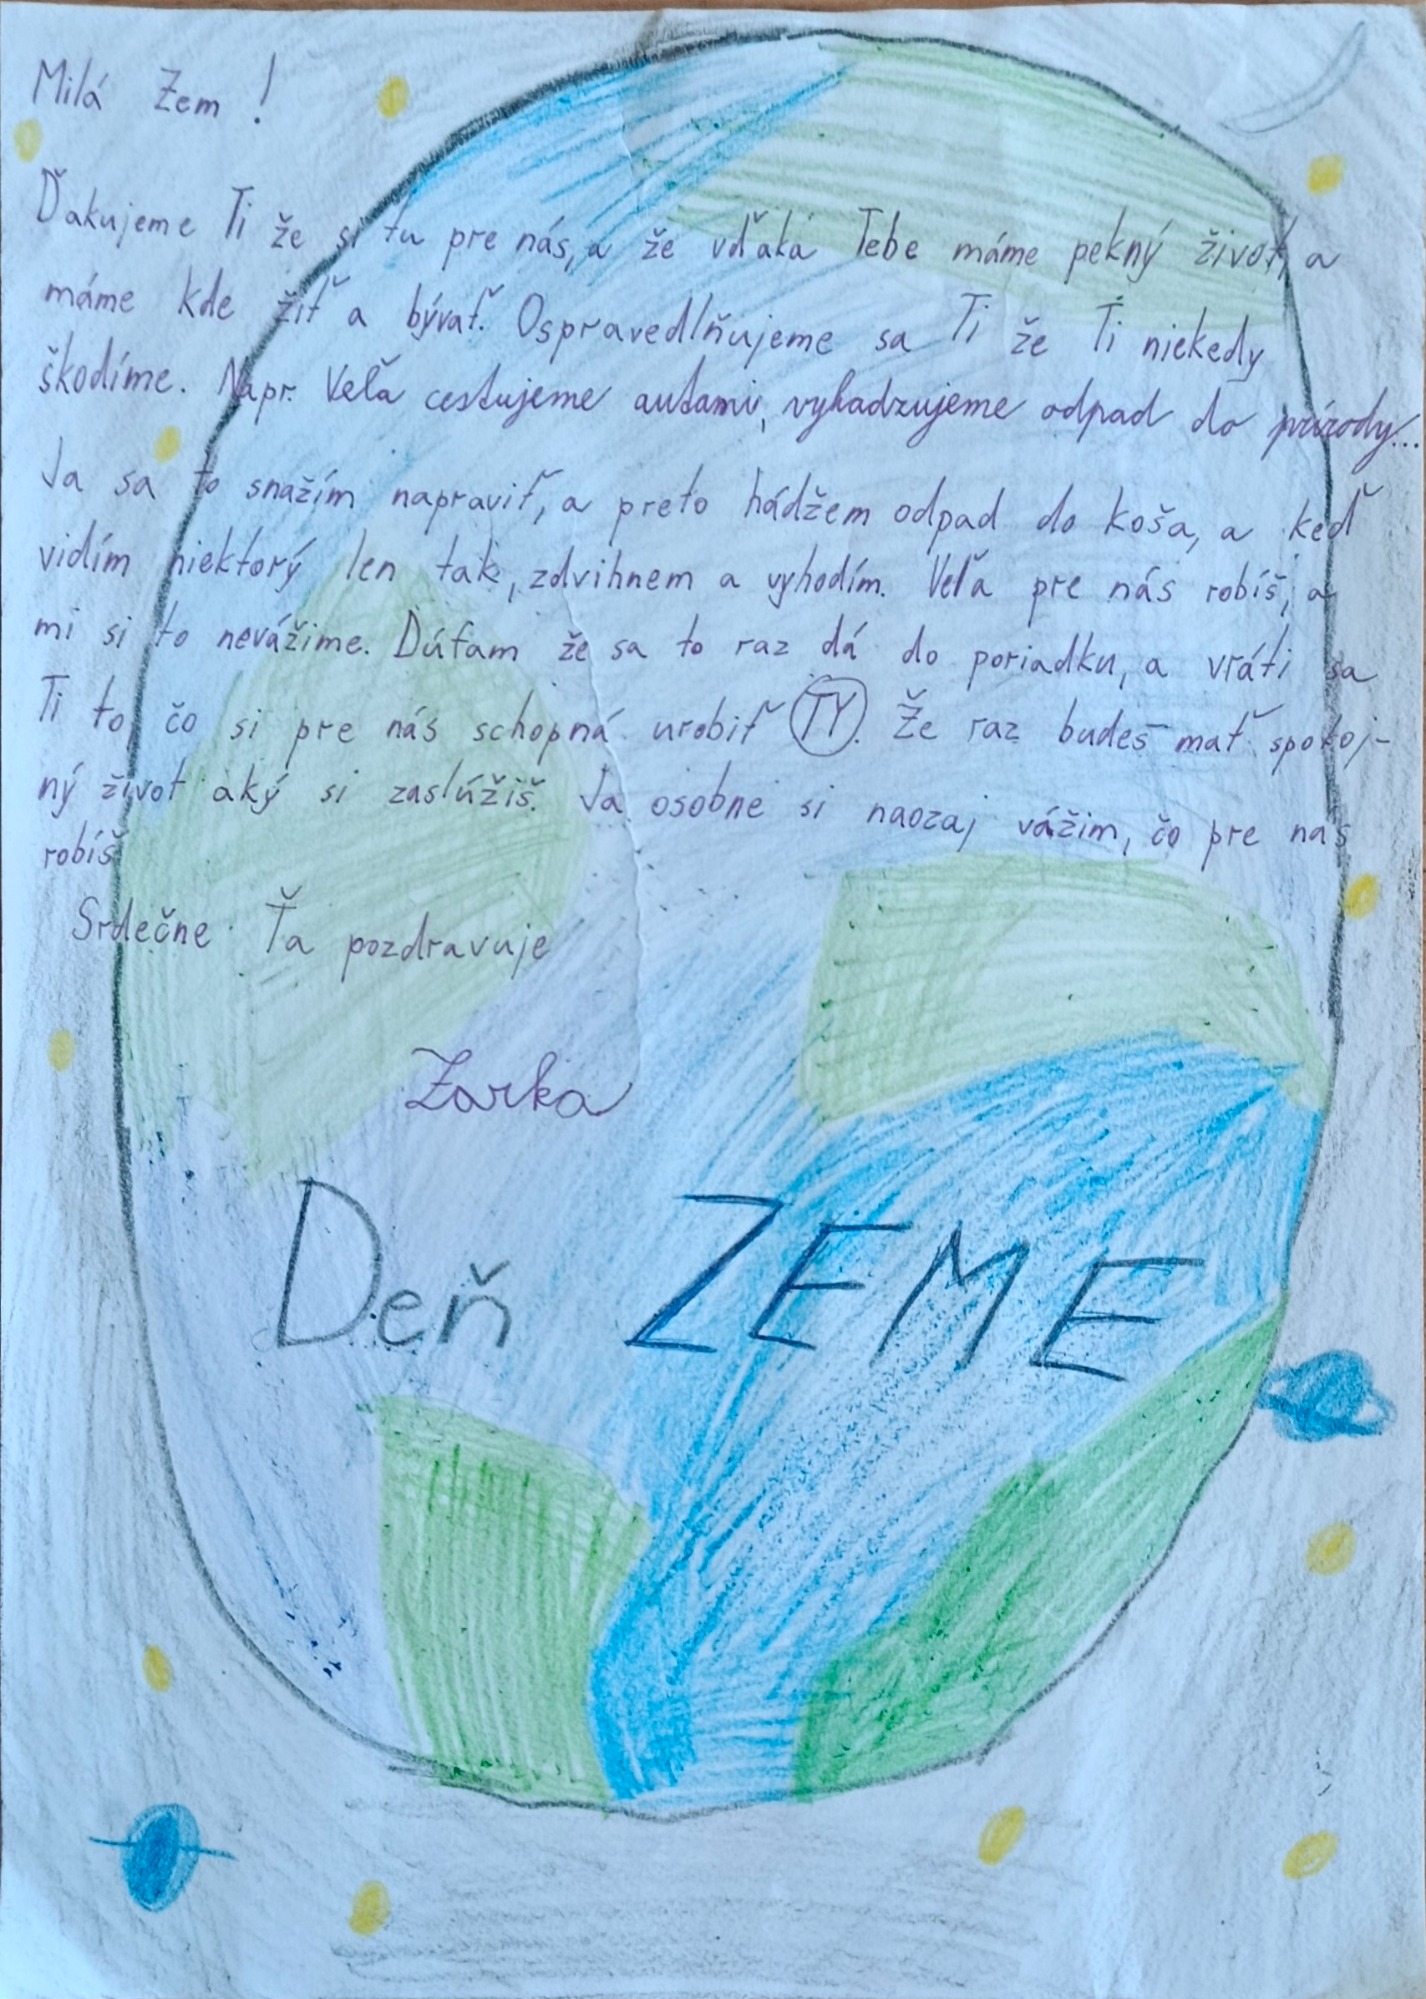 Milá Zem !
Ďakujeme Ti že si tu pre nás, a že vďaka Tebe máme pekný život, a
máme kde žiť a bývať. Ospravedlňujeme sa Ti že Ti niekedy
škodíme. Napr. Veľa cestujeme autami, vyhadzujeme odpad do prírody...
Ja sa to snažím napraviť, a preto hádžem odpad do koša, a keď
vidím niektorý len tak, zdvihnem a vyhodím. Veľa pre nás robíš, a
mi si to nevážime. Dúfam že sa to raz dá do poriadku, a vráti sa
Ti to, čo si pre nás schopná urobiť TY. Že raz budeš mať spokoj-
ný život aký si zaslúžiš. Ja osobne si naozaj vážim, čo pre nás
robíš
Srdečne Ťa pozdravuje
Žarka
Deň ZEME